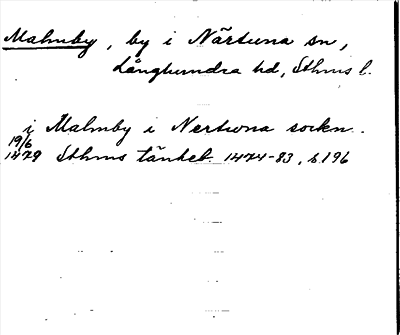 Malmby, by i Närtuna sn,
Långhundra hd, Sthms l.
i Malmby i Nertwna sockn.
19/6
1479 Sthms tänkeb. 1474-83, s. 196